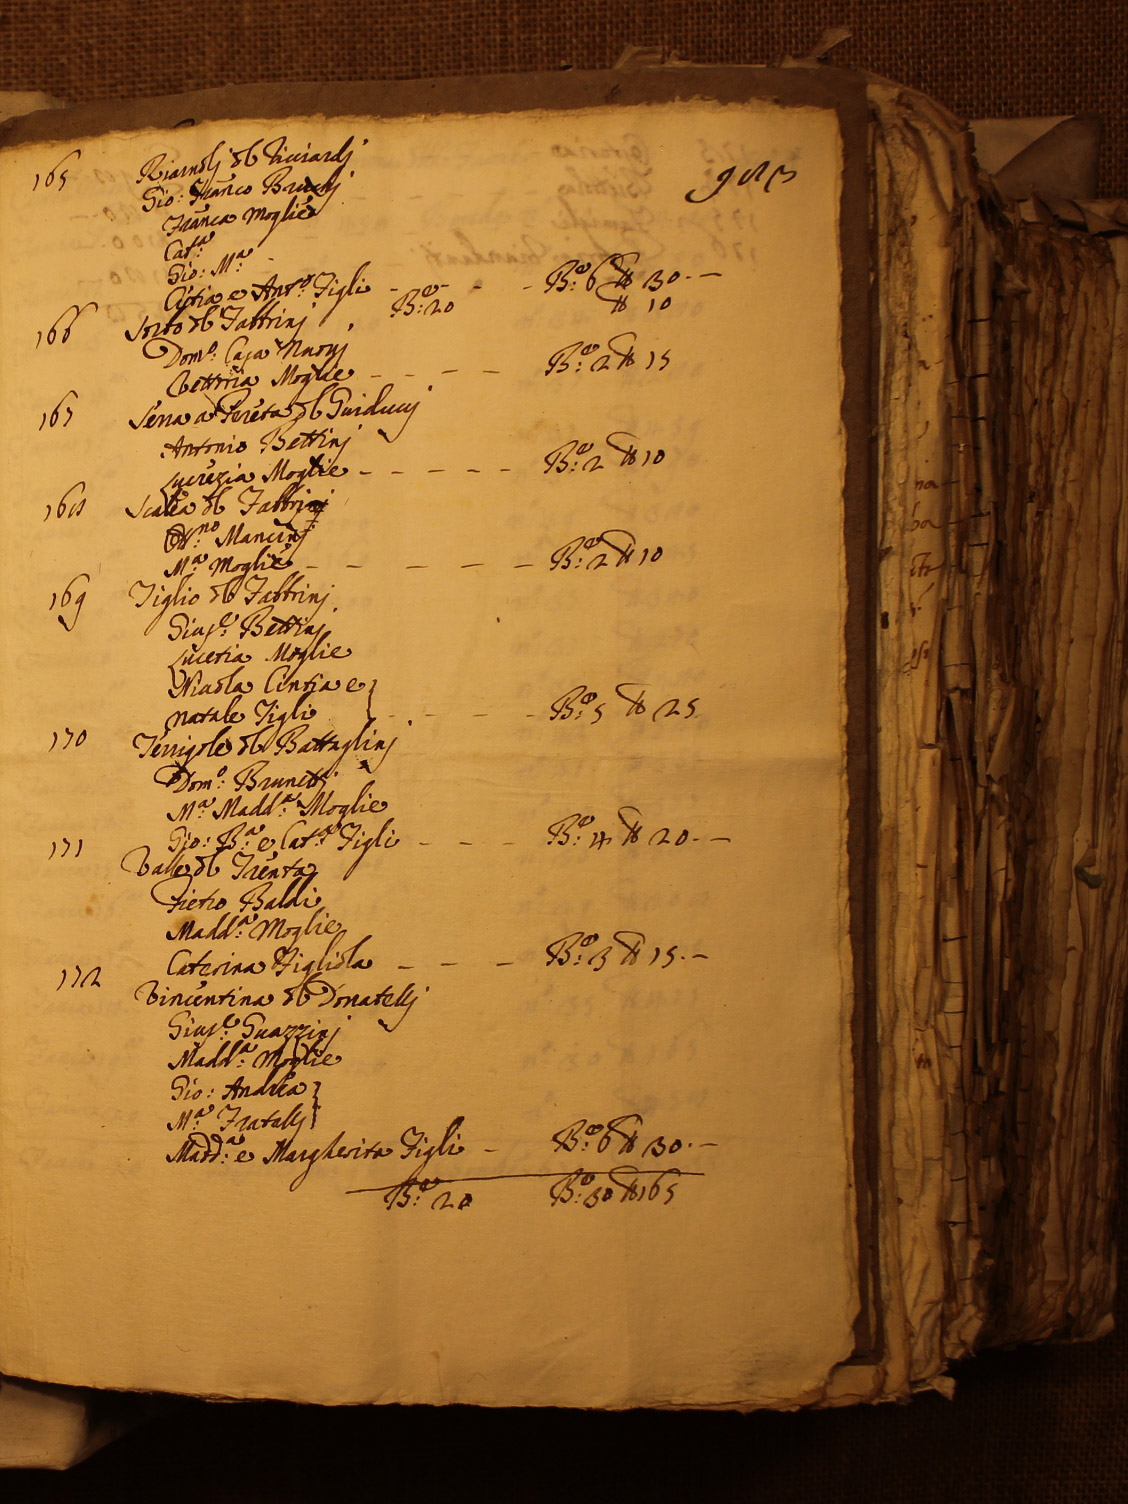 983
165 Riarnolj di Ricciardj
Gio: Franco Bruchj
Franca Moglie
Catª:
Gio: Mª:
Cintia e Antº: Figli - - - Bª: 6 ℔ 30.-
Bª: 20 ℔ 10
166 Sorbo di Fabbrinj
Domº: Capa Nuovj
Vettoria Moglie - - - - Bª: 2 ℔ 15
167 Serra a Pereta di Guiduccj
Antonio Bettinj
Lucrezia Moglie - - - - - Bª: 2 ℔ 10
168 Scalea di Fabbrinj
Mancinj
Mª: Moglie - - - - - - Bª: 2 ℔ 10
169 Tiglio di Fabbrinj
Giusᵉ: Bettinj
Lucetia Moglie
Nicola Cintia e
Natale Figli - - - - Bª: 5 ℔ 25
170 Terrigole di Battaglinj
Domº: Brunettj
Mª: Maddª: Moglie
Gio: Bª: e Catª: Figli - - - Bª: 4 ℔ 20.-
171 Valle di Trenta
Pietro Baldi
Maddª: Moglie
Caterina Figliola - - - Bª: 3 ℔ 15.-
172 Vincentina di Donatellj
Giusᵉ: Guazzinj
Maddª: Moglie
Gio: Andrea
Mª: Fratellj
Maddª: e Margherita Figli - Bª: 6 ℔ 30.-
Bª: 20 Bª: 30 ℔ 165